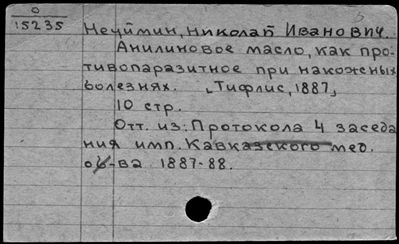 О
15235
Нейтмин, Николай Иванович.
Анилиновое масло, как про-
тивопаразитное при накожных
болезнях. Тифлис, 1887,
10 стр.
Отт. из: Протокола 4 заседа
ния имп. Кавказского мед.
об-ва 1887-88.